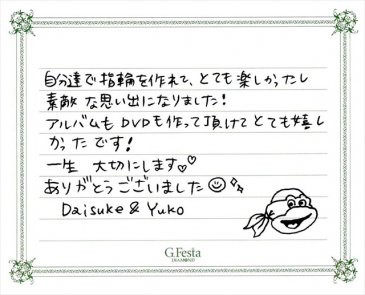 自分達で指輪を作れて、とても楽しかったし
素敵な思い出になりました!
アルバムもDVDも作って頂けてとても嬉し
かったです!
一生 大切にします♡♡
ありがとうございました☺✨
Daisuke & Yuko
G.Festa
DIAMOND